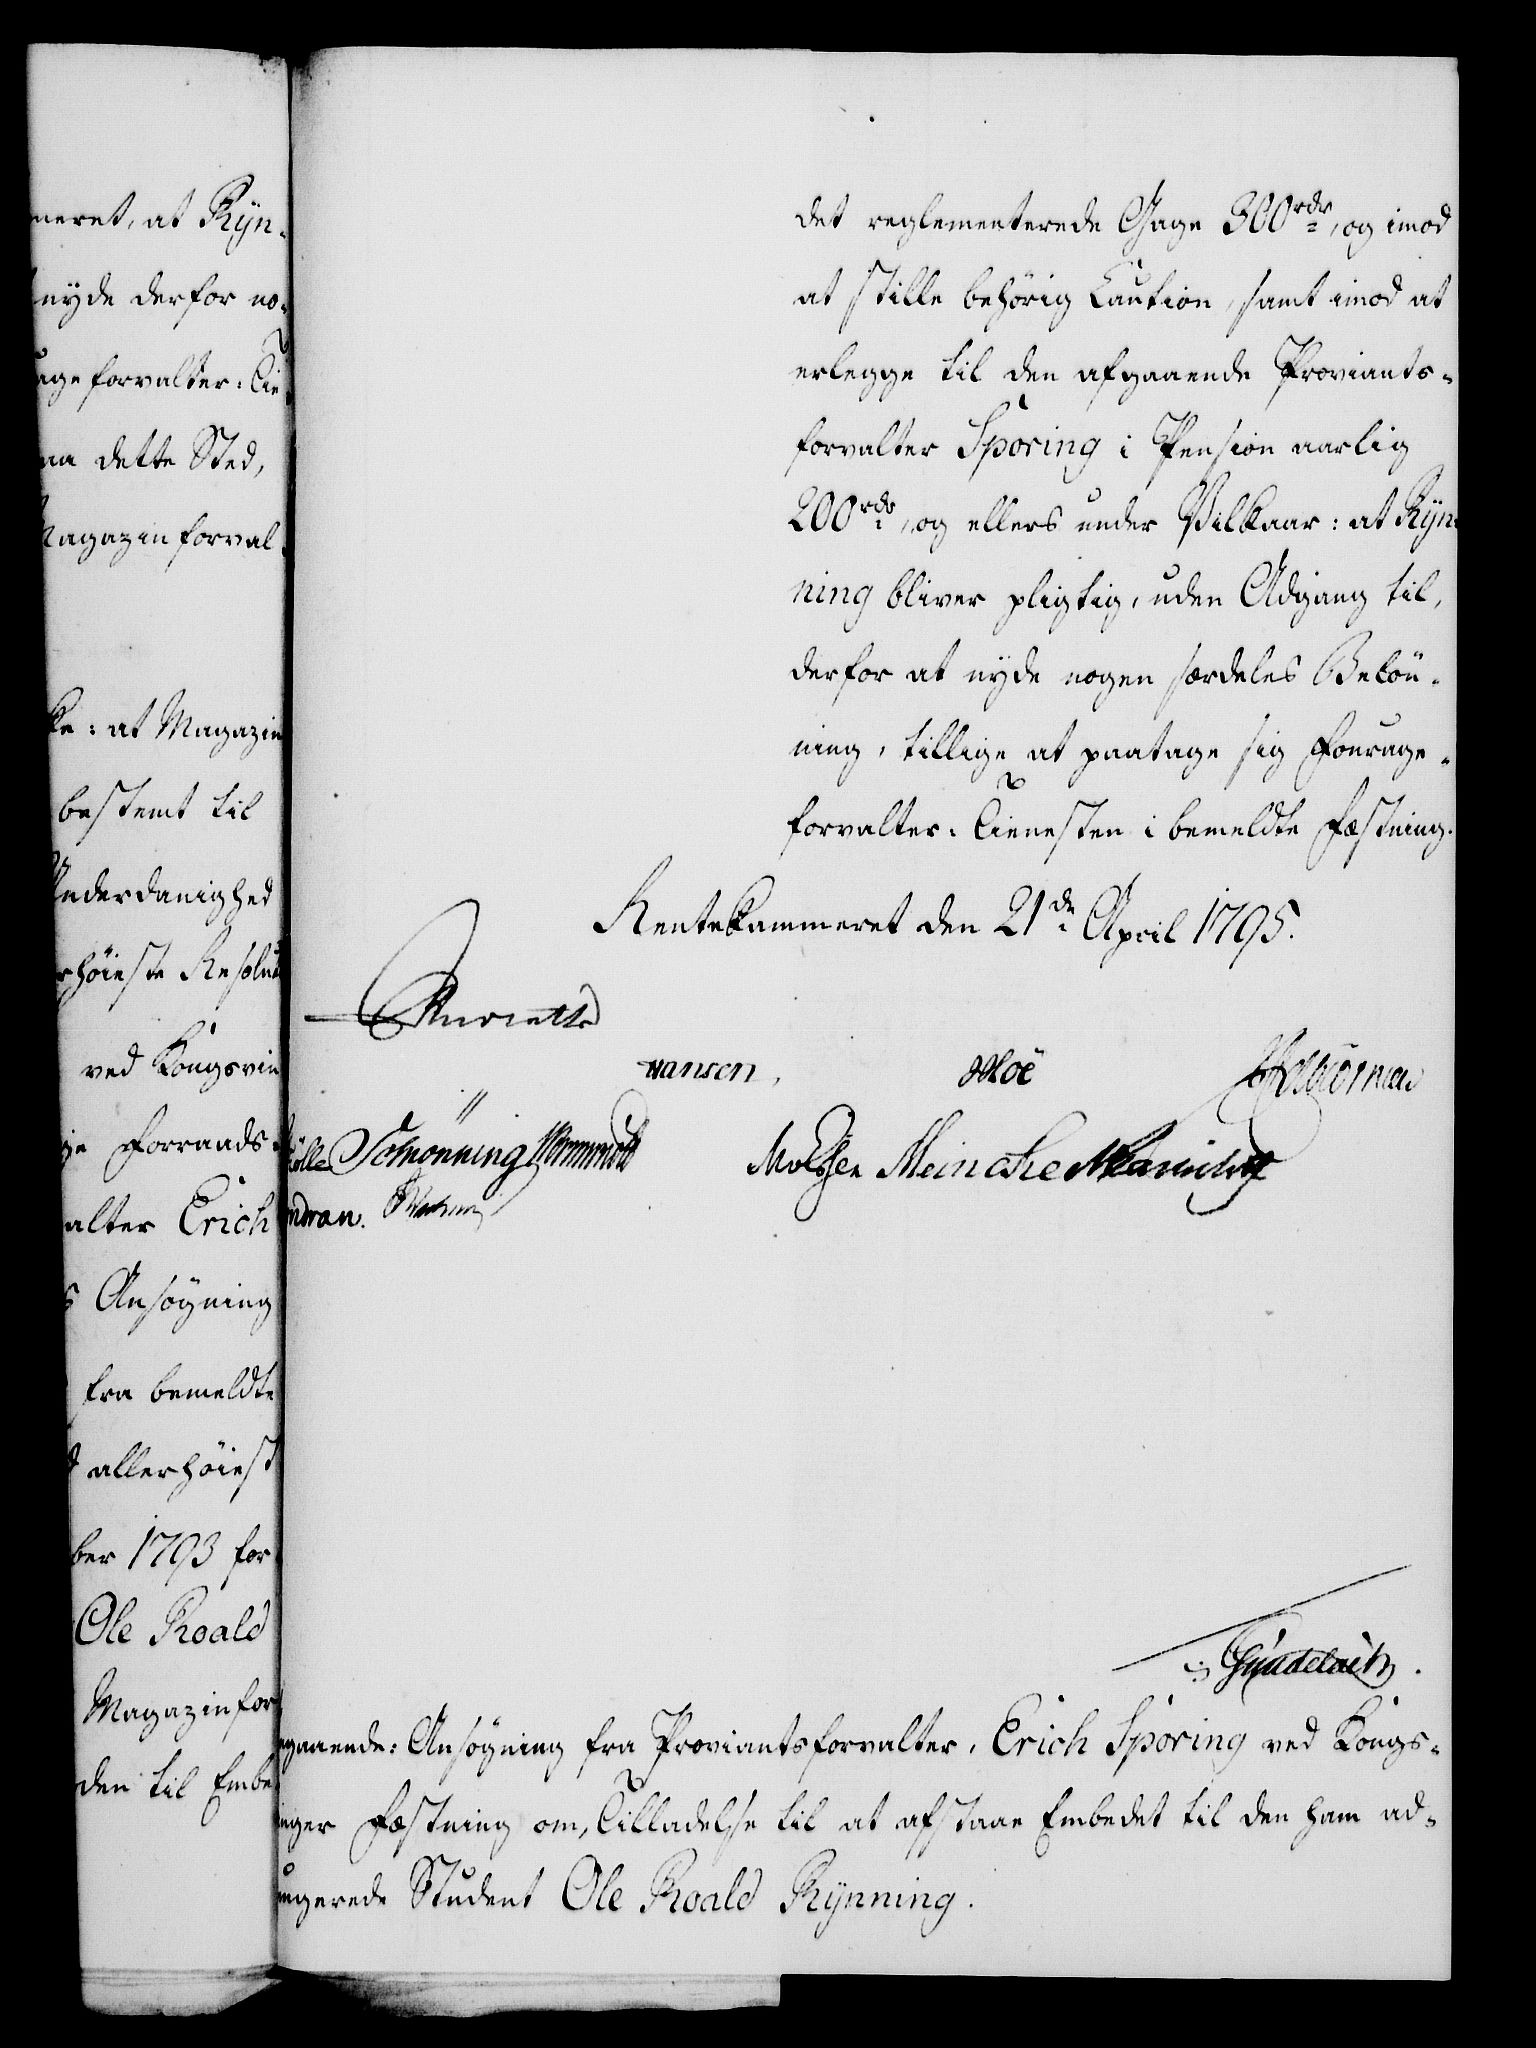 meret, at Rÿn-
nÿde derfor no-
ageforvalter-Tie-
aa dette Sted,
Magazinforval-
ke: at Magazin
bestemt til
Underdanighed
rhöieste Resolut
ved Kongsvin
ge Forraads-
alter Erich
s Ansögning
fra bemeldte
allerhöiest
ber 1793 for
Ole Roald
Magazinfor
den til Embe
det reglementerede Gage 300 rdr, og imod
at stille behörig Caution, samt imod at
erlegge til den afgaaende Proviants-
forvalter Sporing i Pension aarlig
200 rdr, og ellers under Vilkaar: at Rÿn-
ning bliver pligtig, uden Adgang til,
derfor at nyde nogen særdeles Belön-
ning, tillige at paatage sig Fourage-
forvalter-Tienesten i bemeldte Fæstning.
Rentekammeret den 21de April 1795.
Hansen, Moë
Schönning Wormwold Meinche
Wadum
Gündelach.
gaaende: Ansögning fra Proviantsforvalter, Erich Sporing ved Kongs-
inger Fæstning om, Tilladelse til at afstaae Embedet til den ham ad-
ungerede Student Ole Roald Rÿnning.